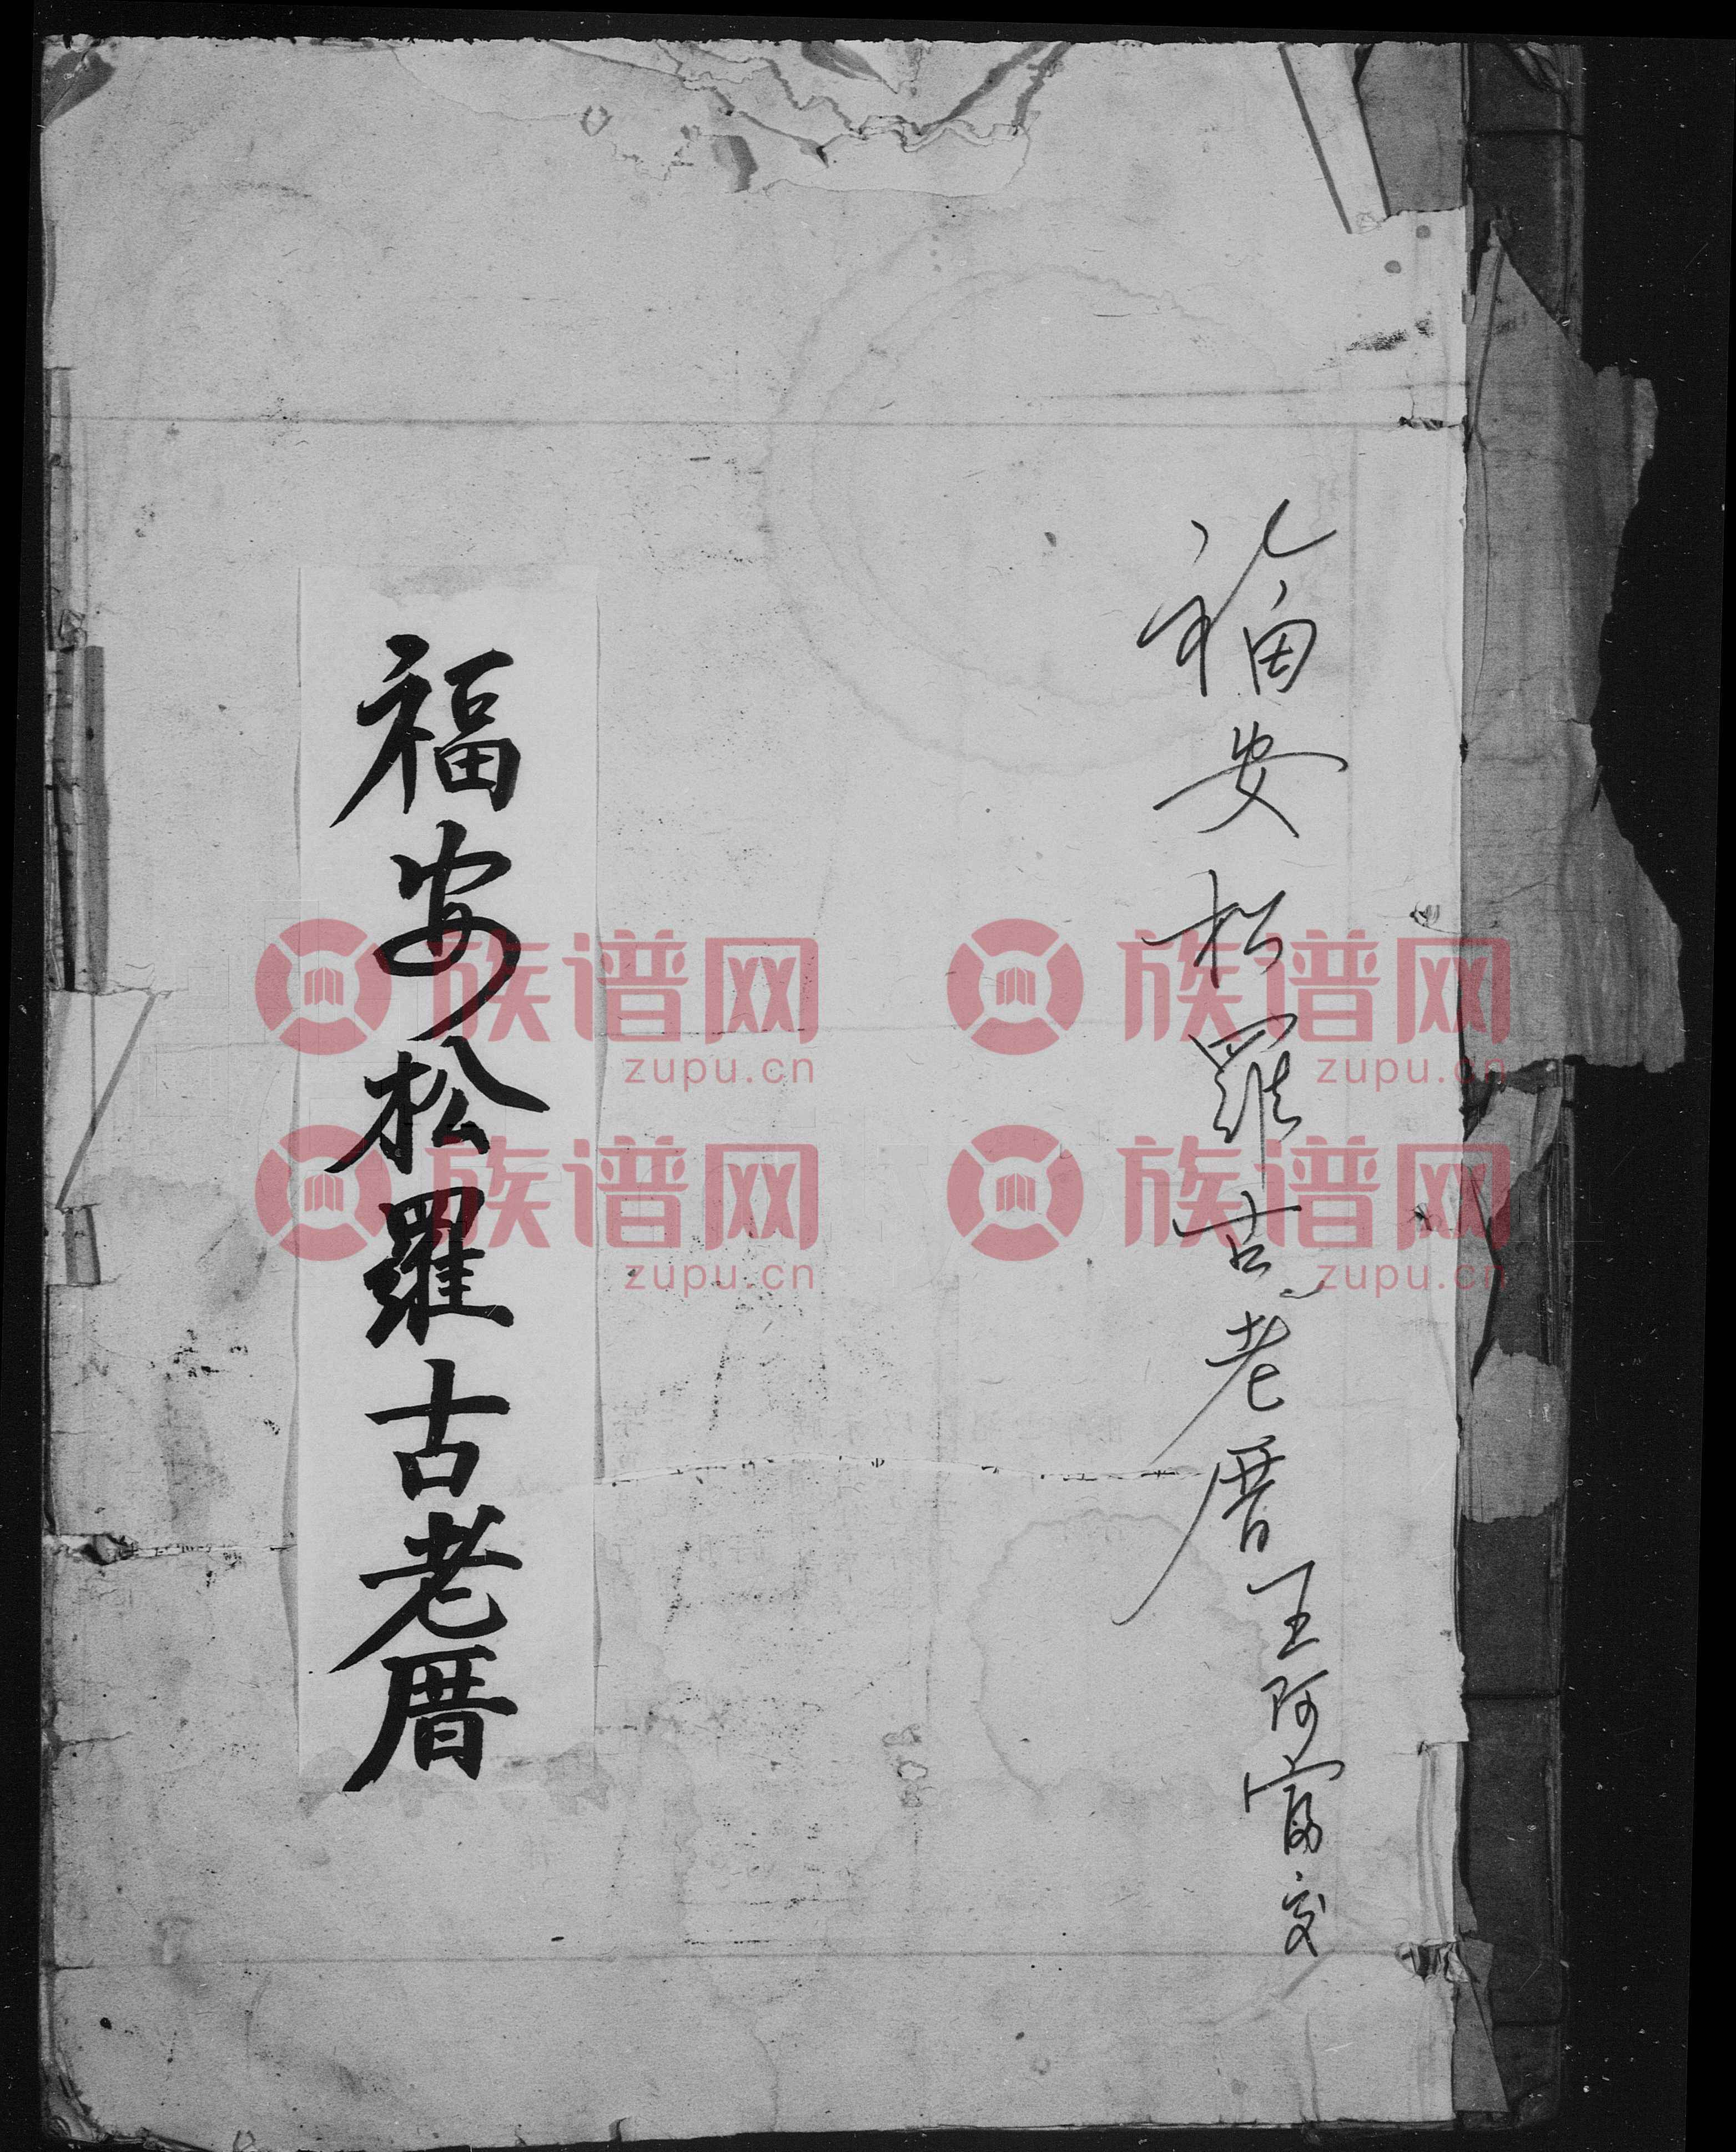 福安松羅古老厝王阿富交
福安松羅古老厝
族谱网
zupu.cn
族谱网
zupu.cn
族谱网
zupu.cn
族谱网
zupu.cn